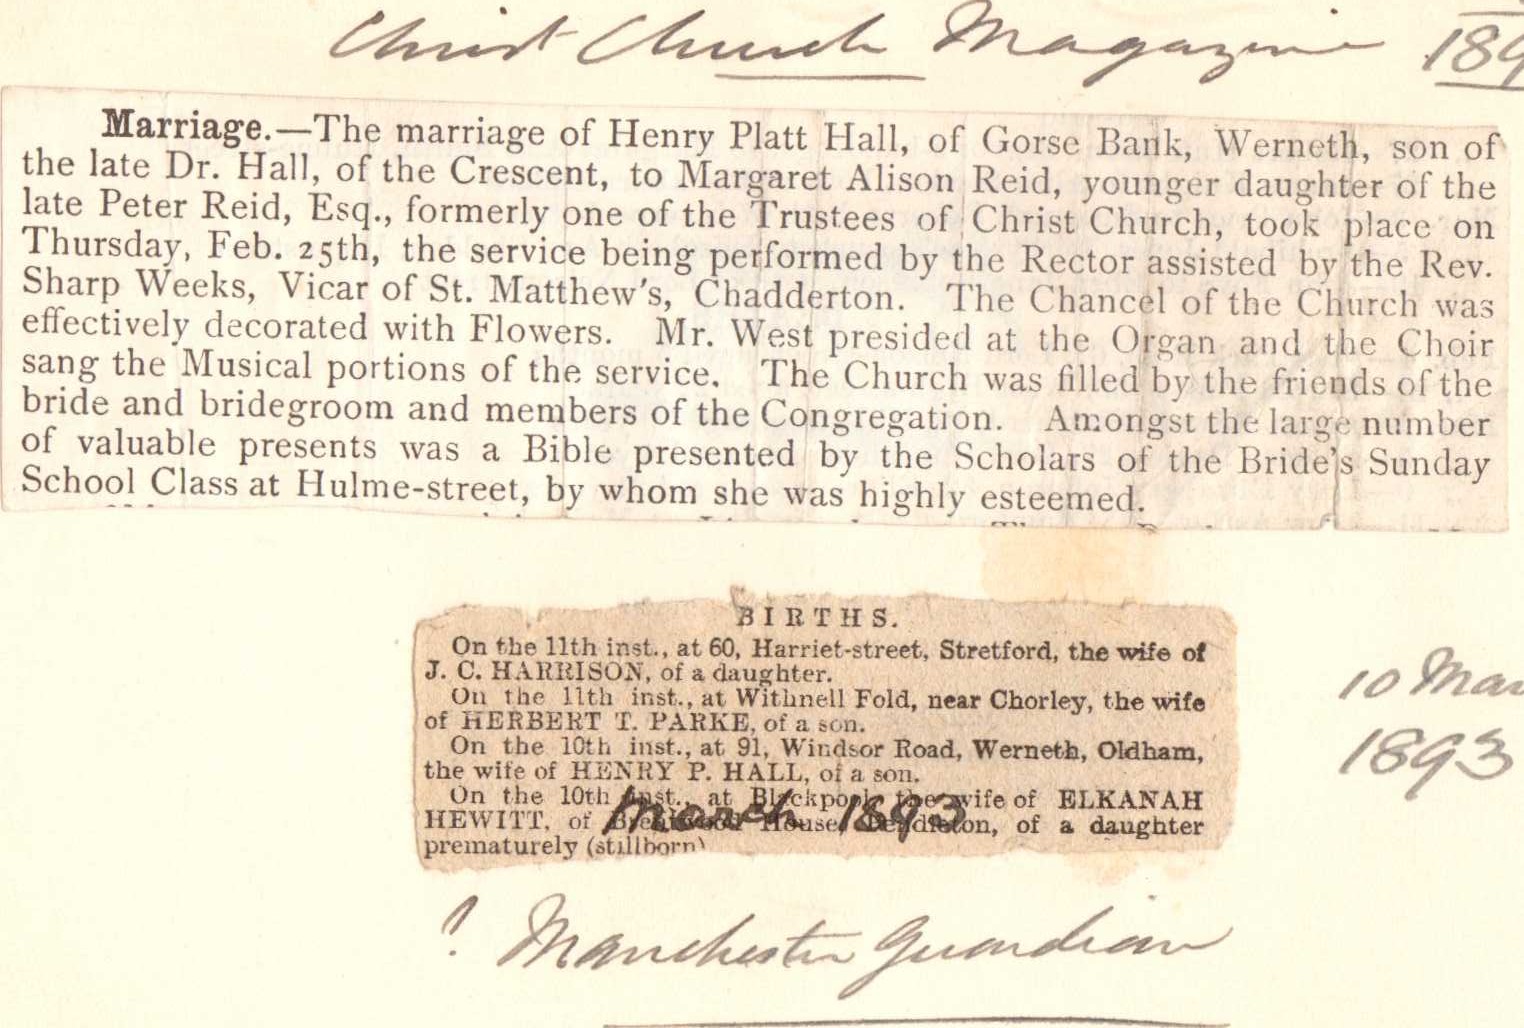 Christ Church Magazine 189
Marriage.—The marriage of Henry Platt Hall, of Gorse Bank, Werneth, son of
the late Dr. Hall, of the Crescent, to Margaret Alison Reid, younger daughter of the
late Peter Reid, Esq., formerly one of the Trustees of Christ Church, took place on
Thursday, Feb. 25th, the service being performed by the Rector assisted by the Rev.
Sharp Weeks, Vicar of St. Matthew's, Chadderton. The Chancel of the Church was
effectively decorated with Flowers. Mr. West presided at the Organ and the Choir
sang the Musical portions of the service. The Church was filled by the friends of the
bride and bridegroom and members of the Congregation. Amongst the large number
of valuable presents was a Bible presented by the Scholars of the Bride's Sunday
School Class at Hulme-street, by whom she was highly esteemed.
BIRTHS.
On the 11th inst., at 60, Harriet-street, Stretford, the wife of
J. C. HARRISON, of a daughter.
On the 11th inst., at Withnell Fold, near Chorley, the wife
of HERBERT T. PARKE, of a son.
On the 10th inst., at 91, Windsor Road, Werneth, Oldham,
the wife of HENRY P. HALL, of a son.
On the 10th inst., at Blackpool, the wife of ELKANAH
HEWITT, of House, Pendleton, of a daughter
prematurely (stillborn)
March 1893
10 Mar
1893
? Manchester Guardian